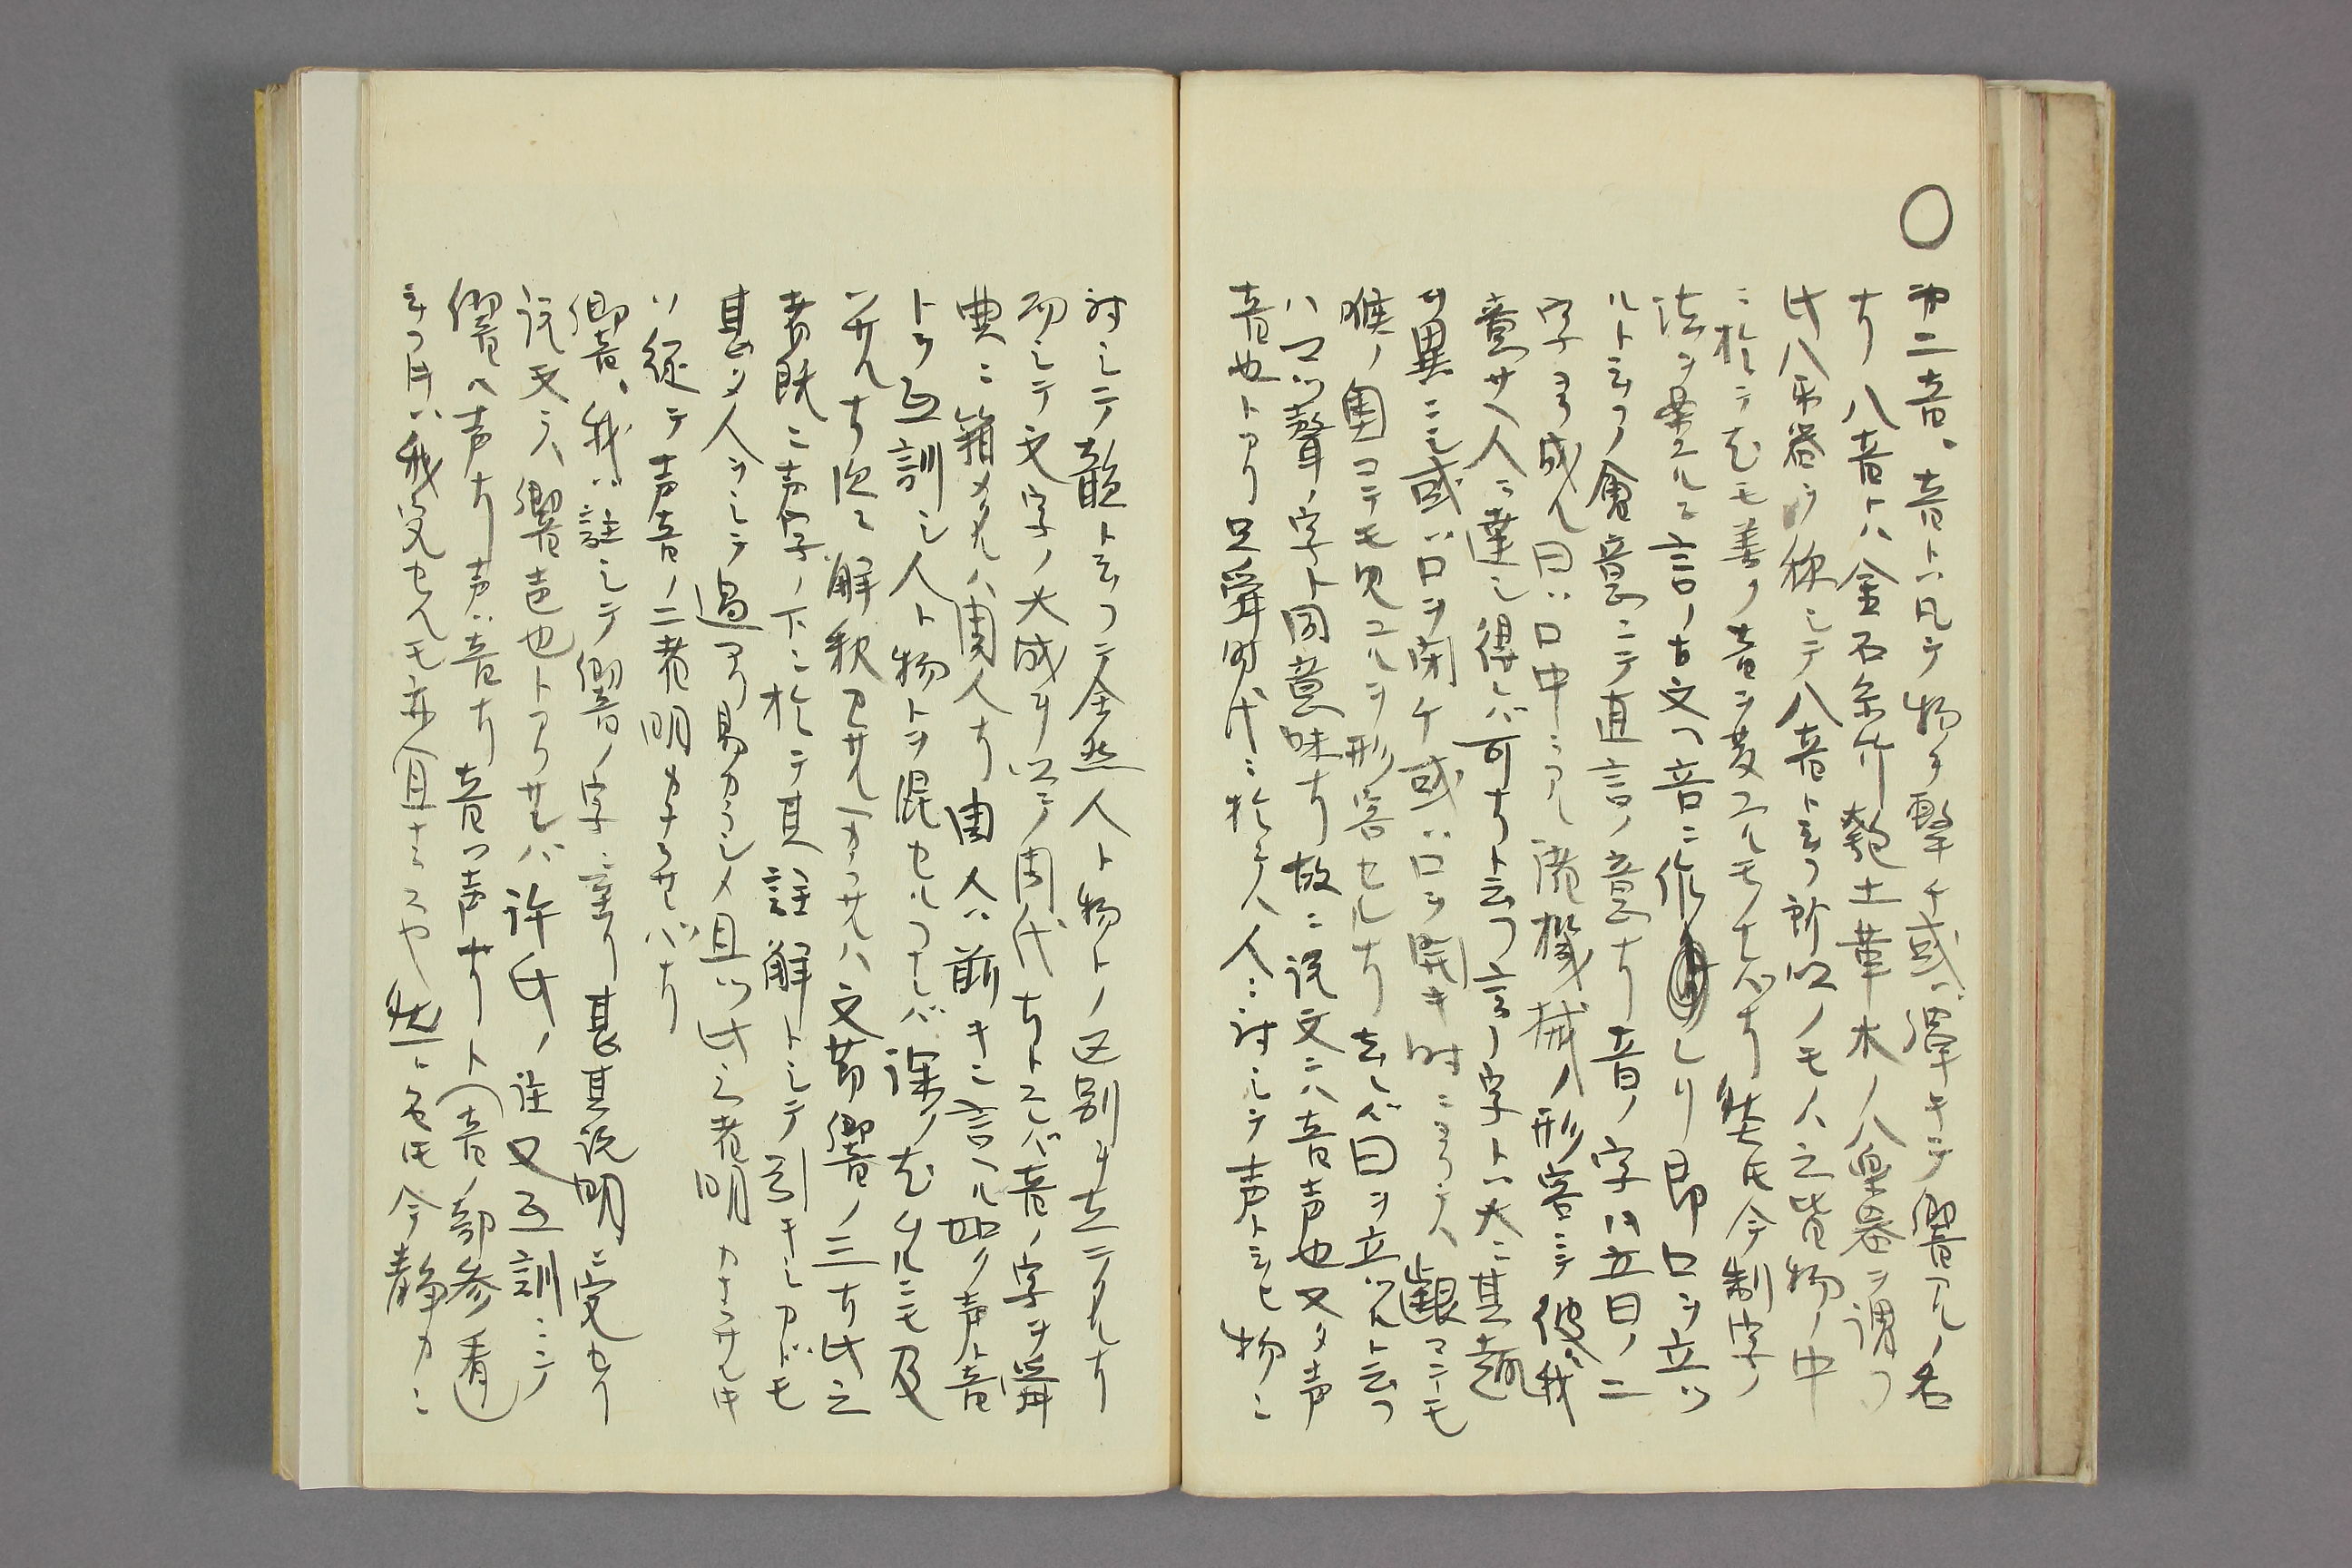 ○
第二音、音トハ凡テ物ヲ撃チ或ハ弾キテ響アルノ名
ナリ八音トハ金石糸竹匏土革木ノ八楽器ヲ謂フ
此八楽器ヲ称シテ八音ト云フ所以ノモノハ之皆物ノ中
ニ於テ尤モ善ク音ヲ発スルモナレバナリ然レ𪜈今制字ノ
法ヲ案スルニ言ノ古文ハ音ニ作レリ即口ヲ立ツ
ルト云フノ會意ニテ直言ノ意ナリ音ノ字ハ立曰ノ二
字ヨリ成ル曰ハ口中ニアル機械ノ形容ニテ彼ガ我
意サ人ニ達シ得レバ可ナリト云フ言ノ字トハ大ニ其趣
ヲ異ニシ或ハ口ヲ閉ケ或ハ口ヲ開キ時ニヨリテハ齦マニモ
喉ノ奥マテモ見ユルヲ形容セルナリ去レバ曰ヲ立ツルト云フ
ハマツ聲ノ字ト同意味ナリ故ニ説文ニハ音声也又タ声
音也トアリ只舜時代ニ於テハ人ニ対シテ声ト云ヒ物ニ
対シテ韻ト云フテ全然人ト物トノ区別ヲ立テタルナリ
而シテ文字ノ大成ヲ以テノ周代ナトスレバ音ノ字ヲ舜
典ニ籍メタルハ周人ナリ周人ハ前キニ言ヘル如ク声ト音
トヲ互訓シ人ト物トヲ混セルフナレバ深ク尤ムルニモ及
ザルナリ次ニ解釈セザル可カラザルハ文芴響ノ三ナリ此之
者既ニ声字ノ下ニ於テ其註解トシテ引キシアレドモ
甚ダ人ヲシテ過アリ易カラシメ且ツ此三者明カナラザル𪜈
ハ従テ声音ノ二者明カナラザレバナリ
響、我ハ註シテ響ノ字ニ至リ甚其説明ニ窮セリ
説文ニハ響声也トアリサレバ許氏ノ注又互訓ニシテ
響ハ声ナリ声ハ音ナリ音ハ声ナリト(音ノ部参看)
云フ𪜈ハ我窮セルモ亦宜ナラスヤ然レト𪜈今静カニ